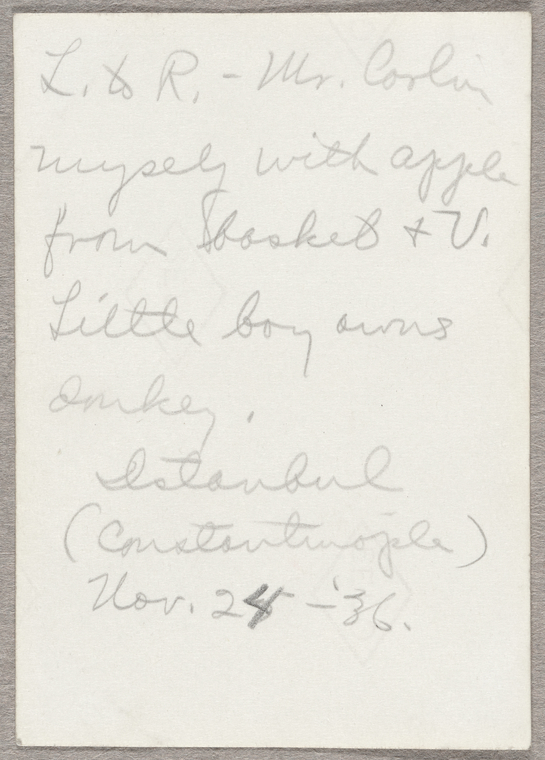 L. to R. - Mr. Carlin
myself with apple
from basket + V.
Little boy owns
donkey.
Istanbul
(Constantinople)
Nov. 24 - '36.